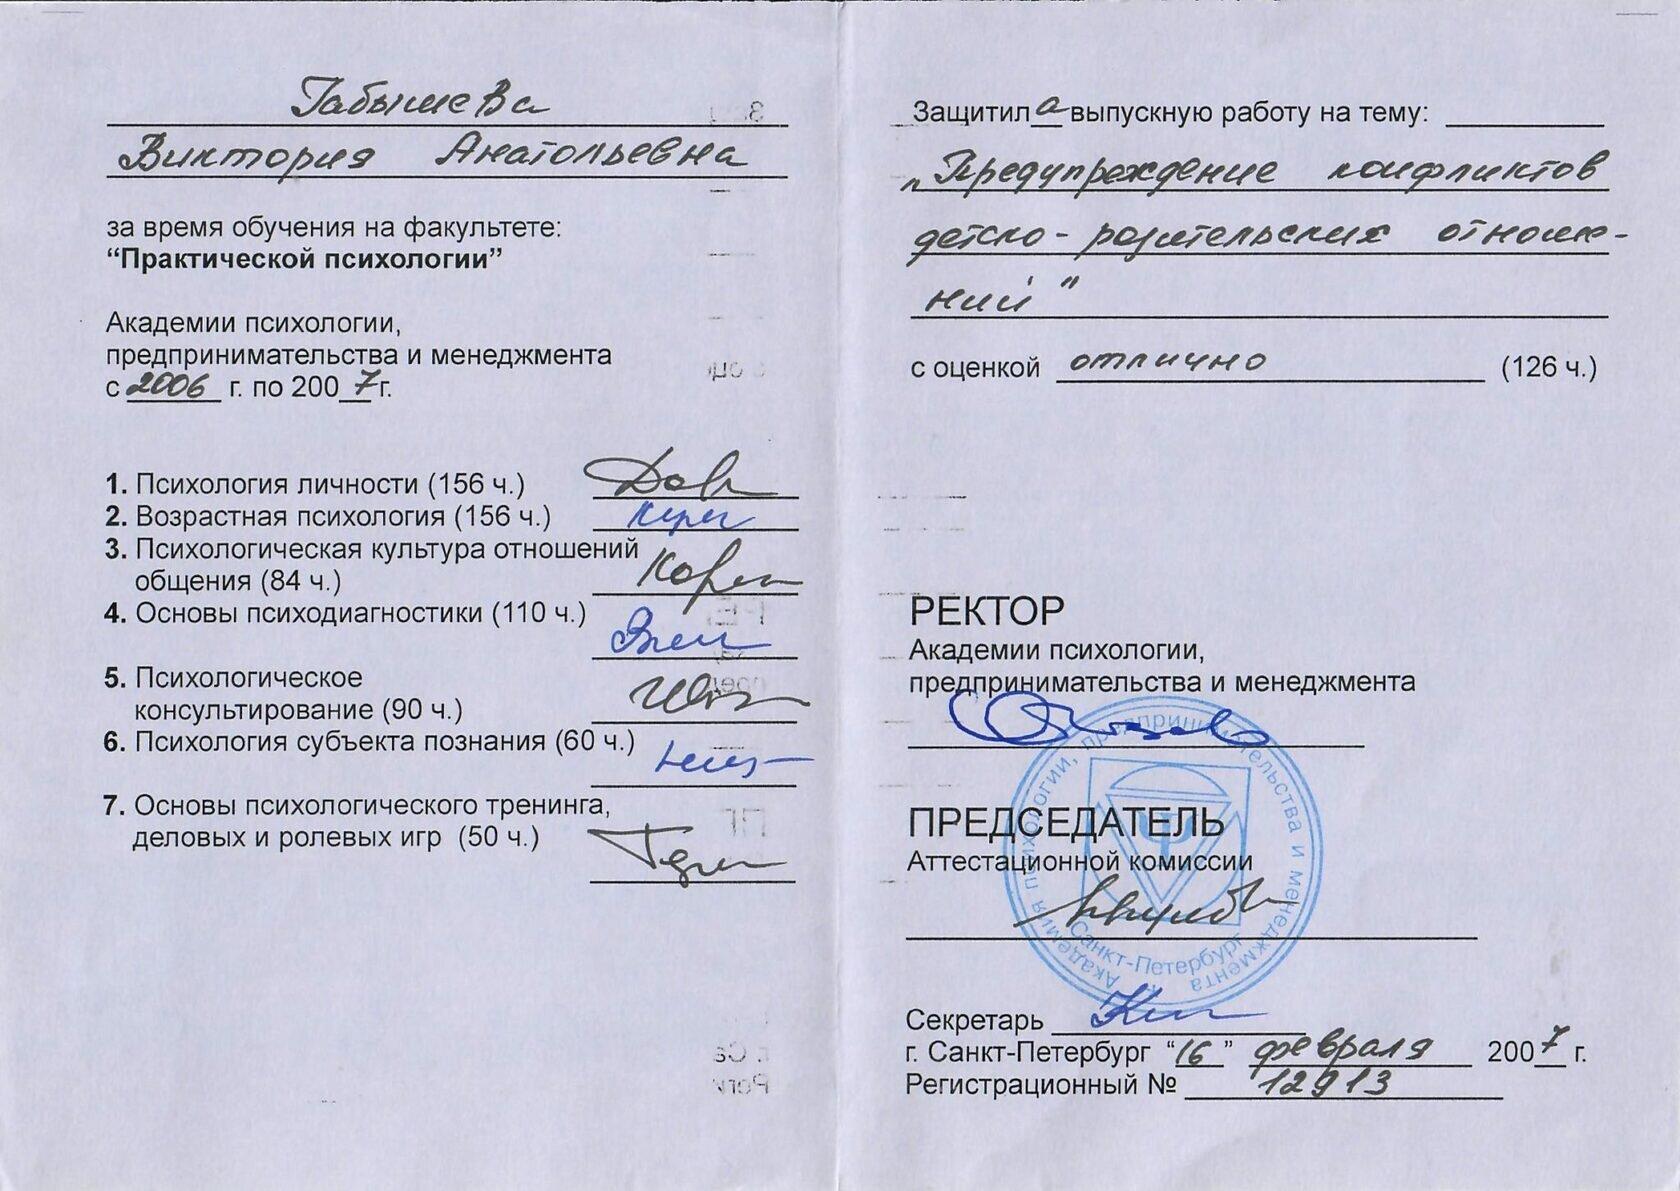 Габышева
Виктория Анатольевна
за время обучения на факультете:
“Практической психологии”
Академии психологии,
предпринимательства и менеджмента
с 2006 г. по 2007 г.
1. Психология личности (156 ч.)
2. Возрастная психология (156 ч.)
3. Психологическая культура отношений
общения (84 ч.)
4. Основы психодиагностики (110 ч.)
5. Психологическое
консультирование (90 ч.)
6. Психология субъекта познания (60 ч.)
7. Основы психологического тренинга,
деловых и ролевых игр (50 ч.)
Защитила выпускную работу на тему:
„Предупреждение конфликтов
детско-родительских отноше-
ний"
с оценкой отлично (126 ч.)
РЕКТОР
Академии психологии,
предпринимательства и менеджмента
ПРЕДСЕДАТЕЛЬ
Аттестационной комиссии
Академия психологии, предпринимательства и менеджмента
Санкт-Петербург
Секретарь
г. Санкт-Петербург “16” февраля 2007 г.
Регистрационный № 12913